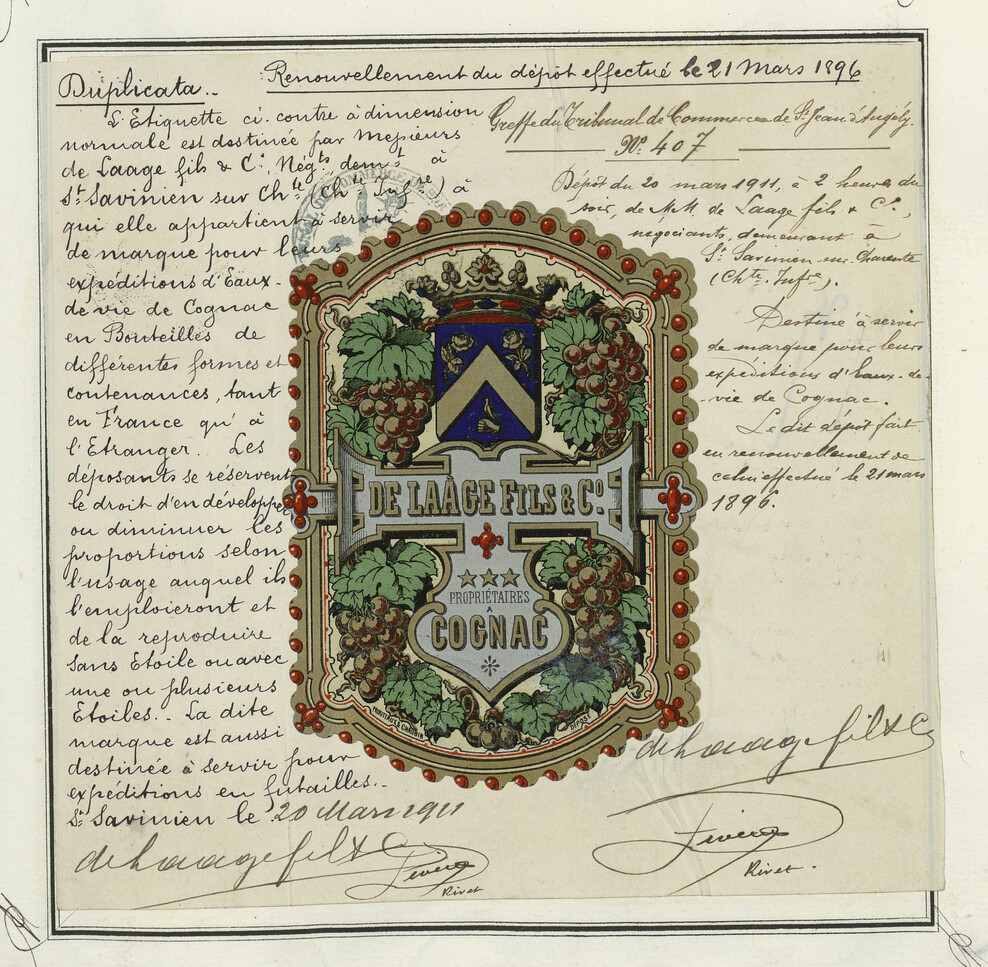 Renouvellement du dépôt effectué le 21 Mars 1896
Duplicata..
L'Etiquette ci-contre à dimension
normale est destinée par Messieurs
de Laage fils & Cº, Négts demt à
St Savinien sur Chte (Chte Infre) à
qui elle appartient à servir
de marque pour leurs
expéditions d'Eaux-
de-vie de Cognac
en Bouteilles de
différentes formes et
contenances, tant
en France qu'à
l'Etranger. Les
déposants se réservent
le droit d'en développer
ou diminuer les
proportions selon
l'usage auquel ils
l'emploieront et
de la reproduire
sans Etoile ou avec
une ou plusieurs
Etoiles.. La dite
marque est aussi
destinée à servir pour
expéditions en futailles..
St Savinien le 20 Mars 1911
de Laage fils & Co
Rivet
Rivet
Greffe du Tribunal de Commerce de St Jean d'Angély.
Nº 407
Dépôt du 20 mars 1911, à 2 heures du
soir, de M.M. de Laage fils & Cº.,
négociants, demeurant à
St Savinien sur Charente
(Chte. Infre).
Destiné à servir
de marque pour leurs
expéditions d'eaux-de-
-vie de Cognac.
Le dit dépôt fait
en renouvellement de
celui effectué le 21 mars
1896.
de Laage fils & Co
Rivet
Rivet.
DE LAÂGE FILS & Cº.
PROPRIÉTAIRES
A
COGNAC
DÉPOSÉ